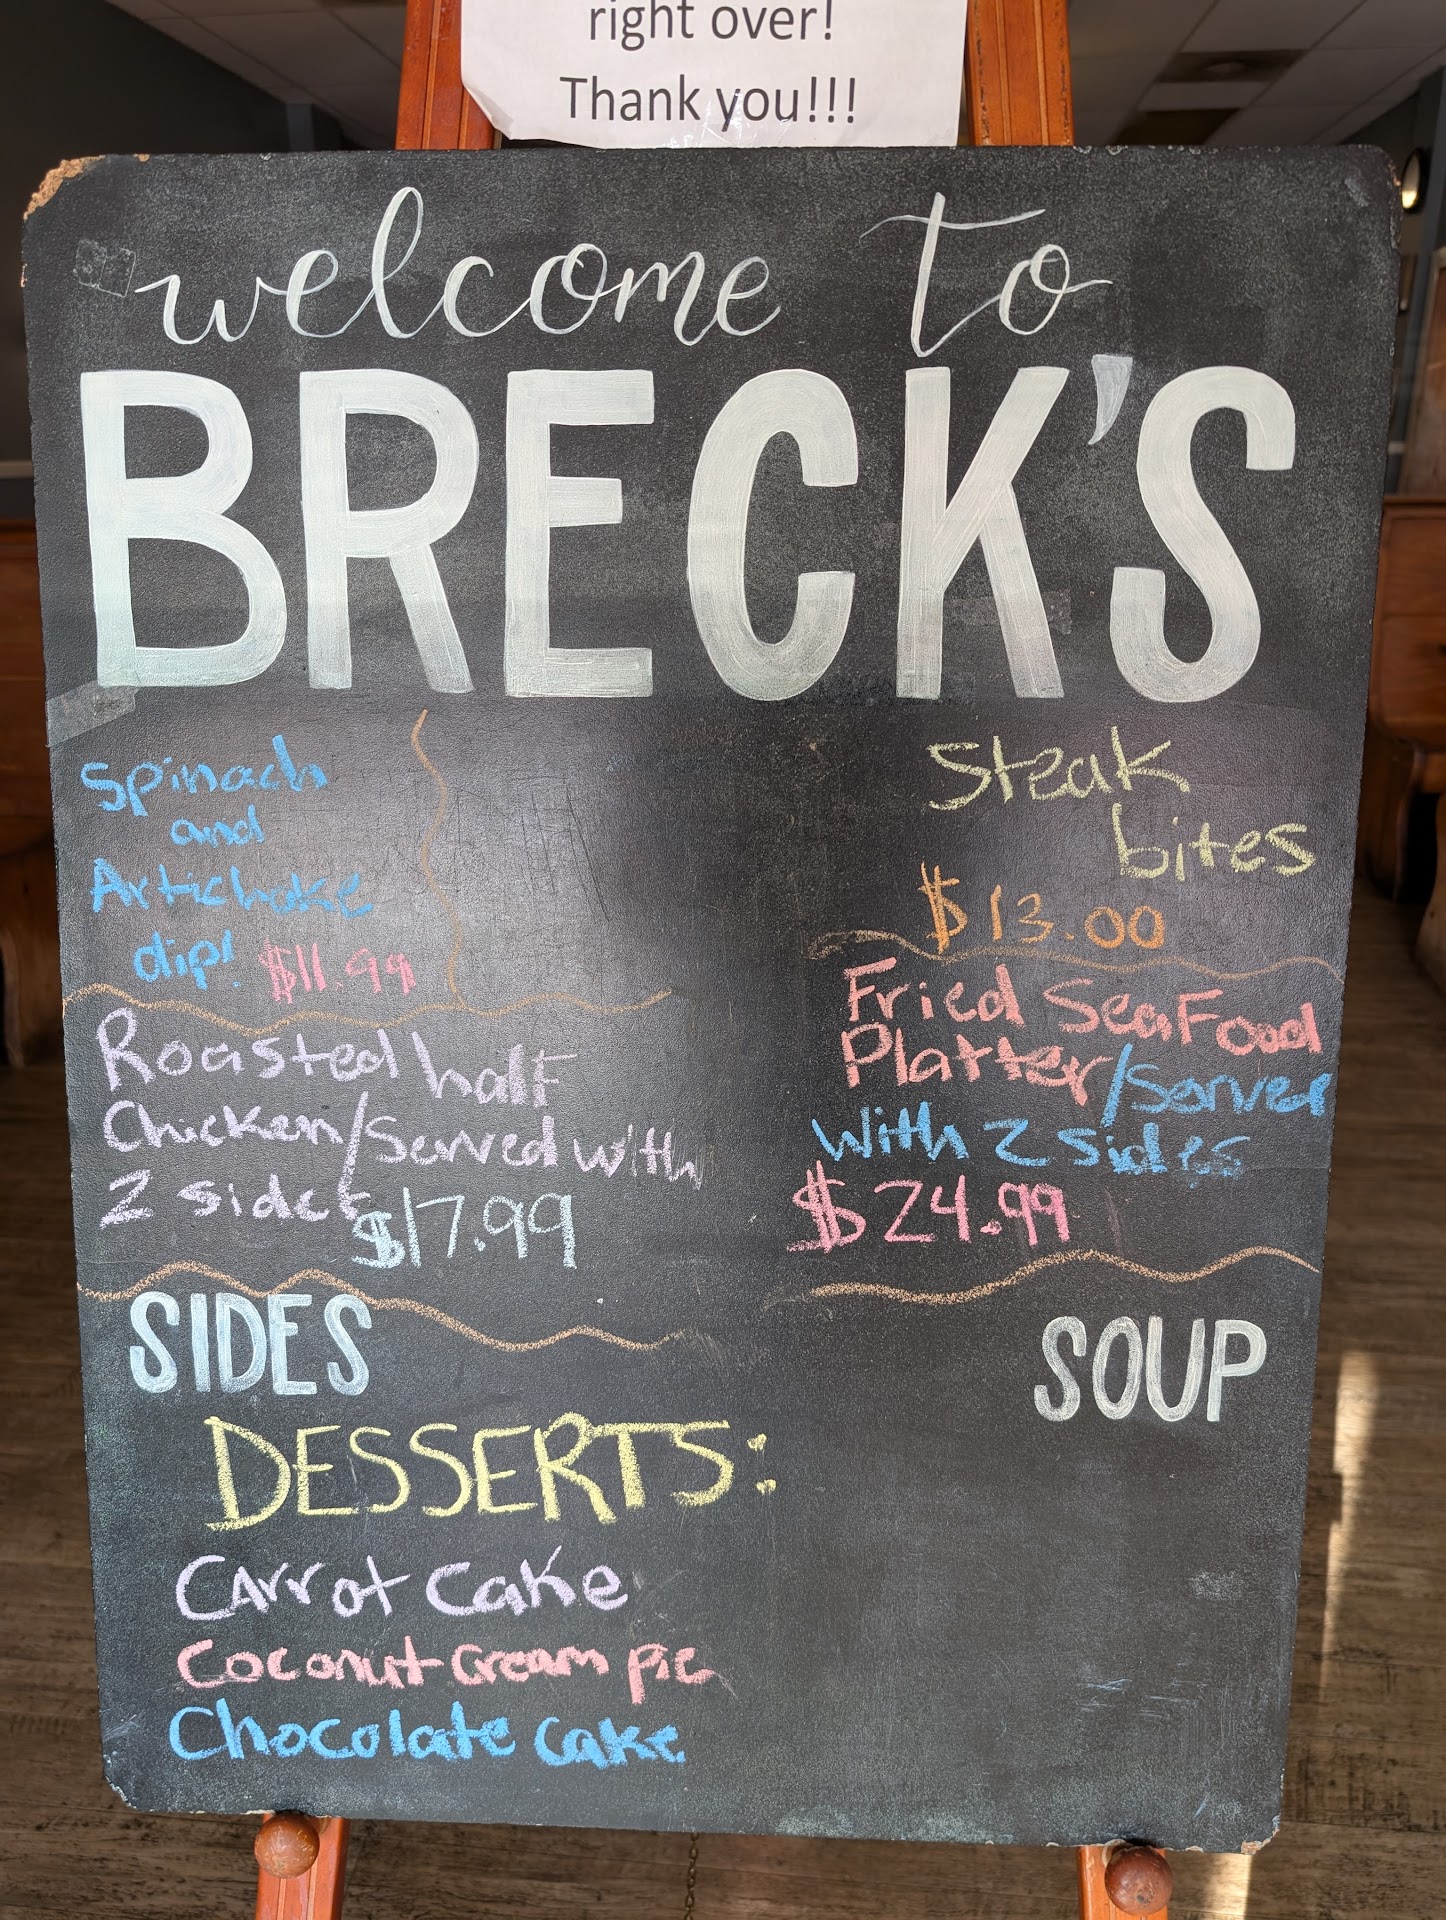 right over!
Thank you!!!
welcome to
BRECK'S
Spinach
and
Artichoke
dip! $11.99
Steak
bites
$13.00
Roasted half
Chicken/Served with
2 sides
$17.99
Fried SeaFood
Platter/Server
With 2 sides
$24.99
SIDES
SOUP
DESSERTS:
CArrot Cake
Coconut Cream pie
Chocolate Cake